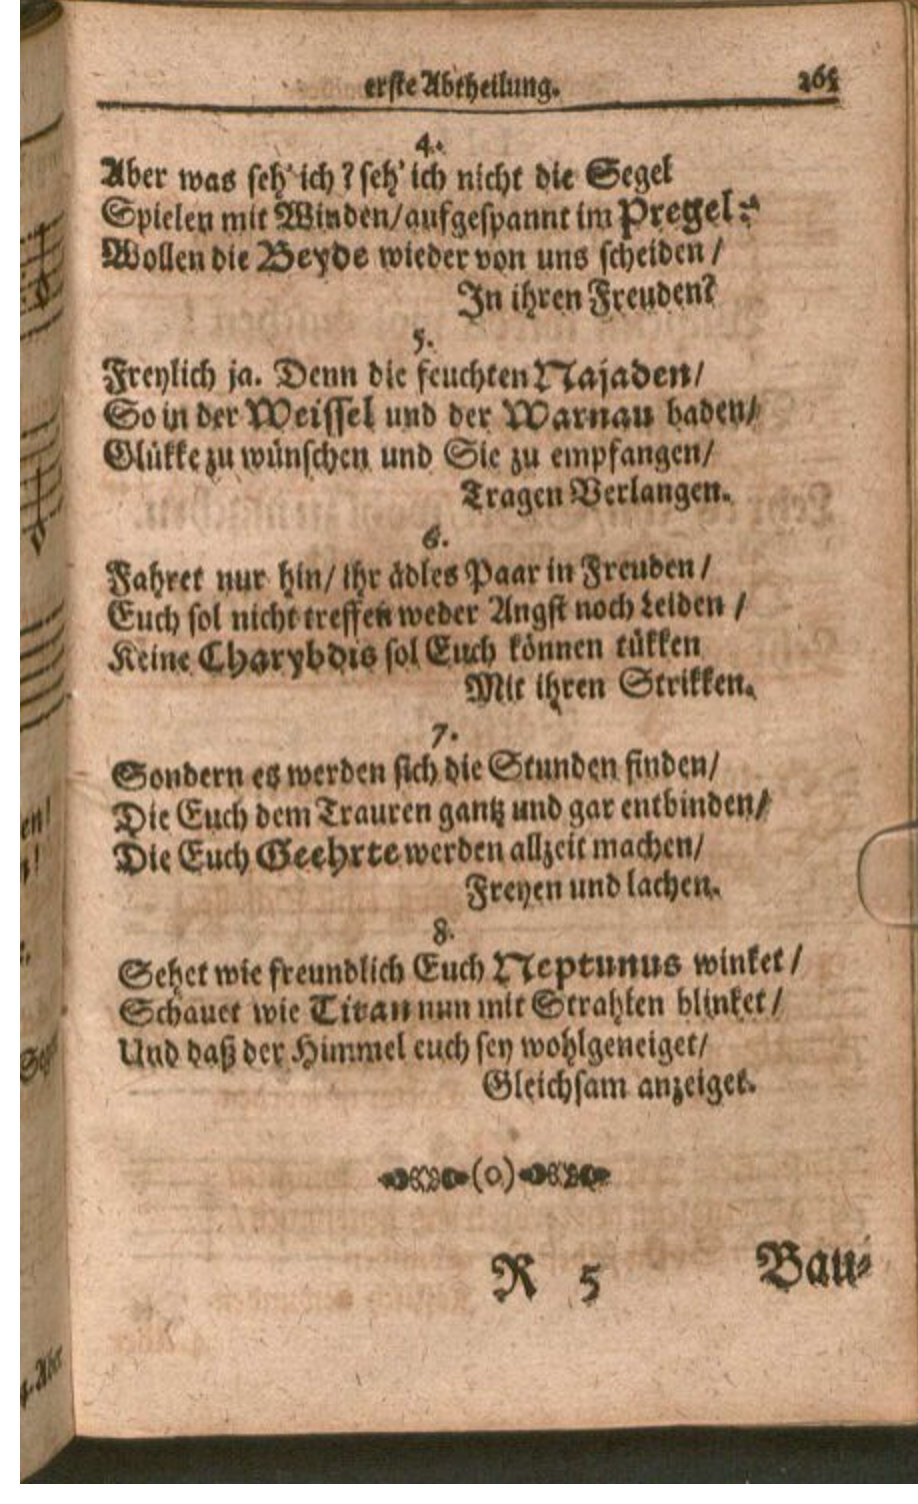 erste Abtheilung. 265
4.
Aber was seh' ich? seh' ich nicht die Segel
Spielen mit Winden/aufgespannt im Pregel:
Wollen die Beyde wieder von uns scheiden/
In ihren Freuden?
5.
Freylich ja. Denn die feuchten Najaden/
So in der Weissel und der Warnau baden/
Glükke zu wünschen und Sie zu empfangen/
Tragen Verlangen.
6.
Fahret nur hin/ ihr ädles Paar in Freuden/
Euch sol nicht treffen weder Angst noch Leiden/
Keine Charybdis sol Euch können tükken
Mit ihren Strikken.
7.
Sondern es werden sich die Stunden finden/
Die Euch dem Trauren gantz und gar entbinden/
Die Euch Geehrte werden allzeit machen/
Freyen und lachen.
8.
Sehet wie freundlich Euch Neptunus winket/
Schauet wie Titan nun mit Strahlen blinket/
Und daß der Himmel euch sey wohlgeneiget/
Gleichsam anzeiget.
(o)
R 5 Bau-
4. Aber